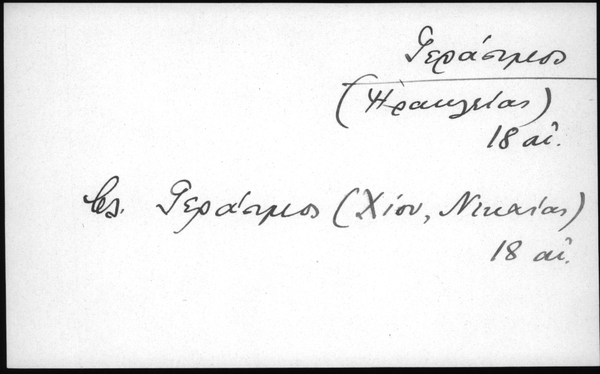 Γεράσιμος
(Ἡρακλείας)
18 αἰ.
βλ. Γεράσιμος (Χίου, Νικαίας)
18 αἰ.